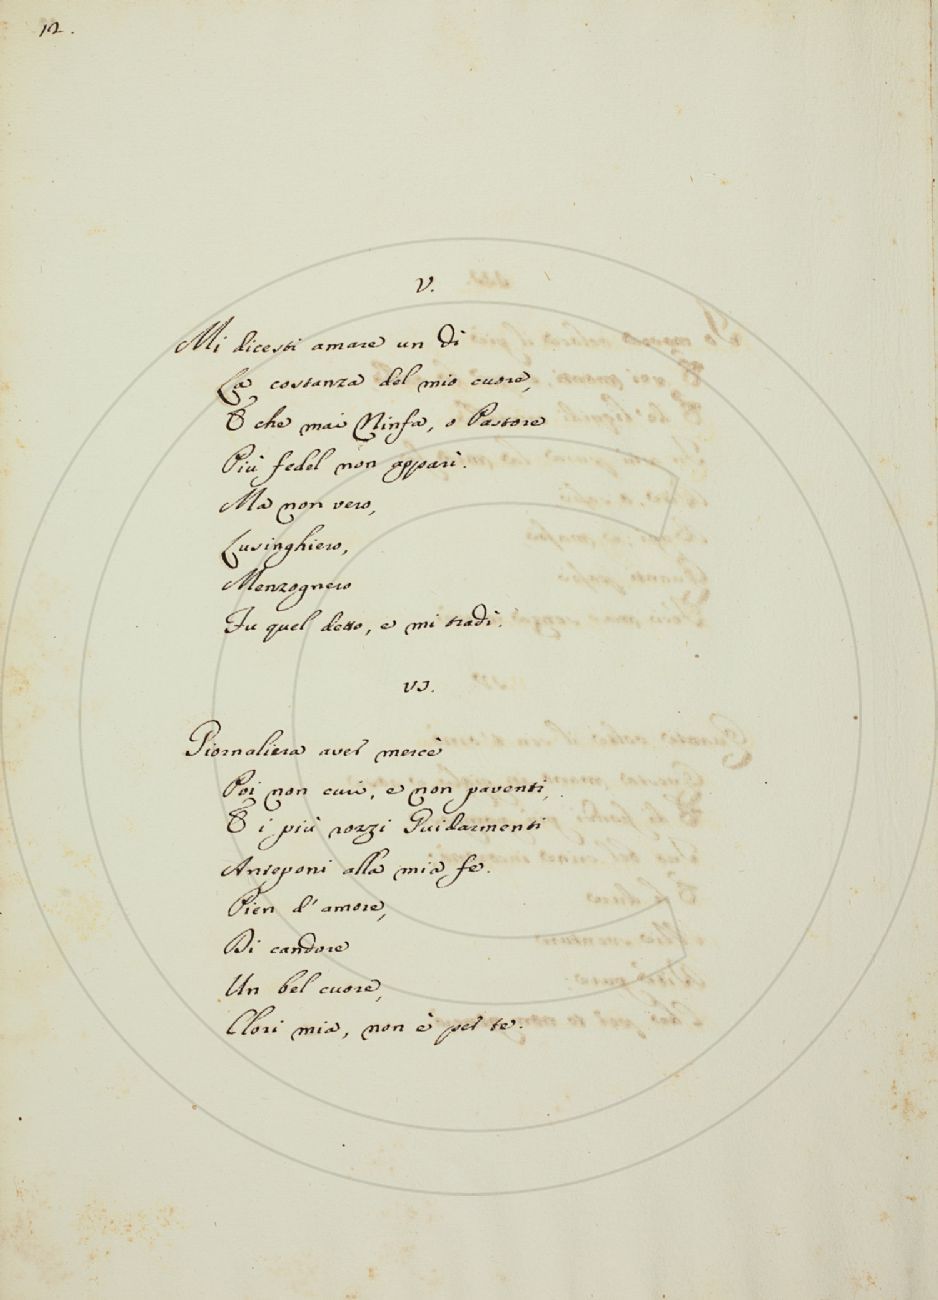 12.
V.
Mi dicesti amare un dì
La costanza del mio cuore,
E che mai Ninfa, o Pastore
Più fedel non apparì.
Ma non vero,
Lusinghiero,
Menzognero
Fu quel detto, e mi tradì.
VI.
Giornaliera aver mercè
Poi non curi, e non paventi,
E i più rozzi Guidarmenti
Anteponi alla mia fe.
Pien d'amore,
Di candore
Un bel cuore,
Clori mia, non è per te.